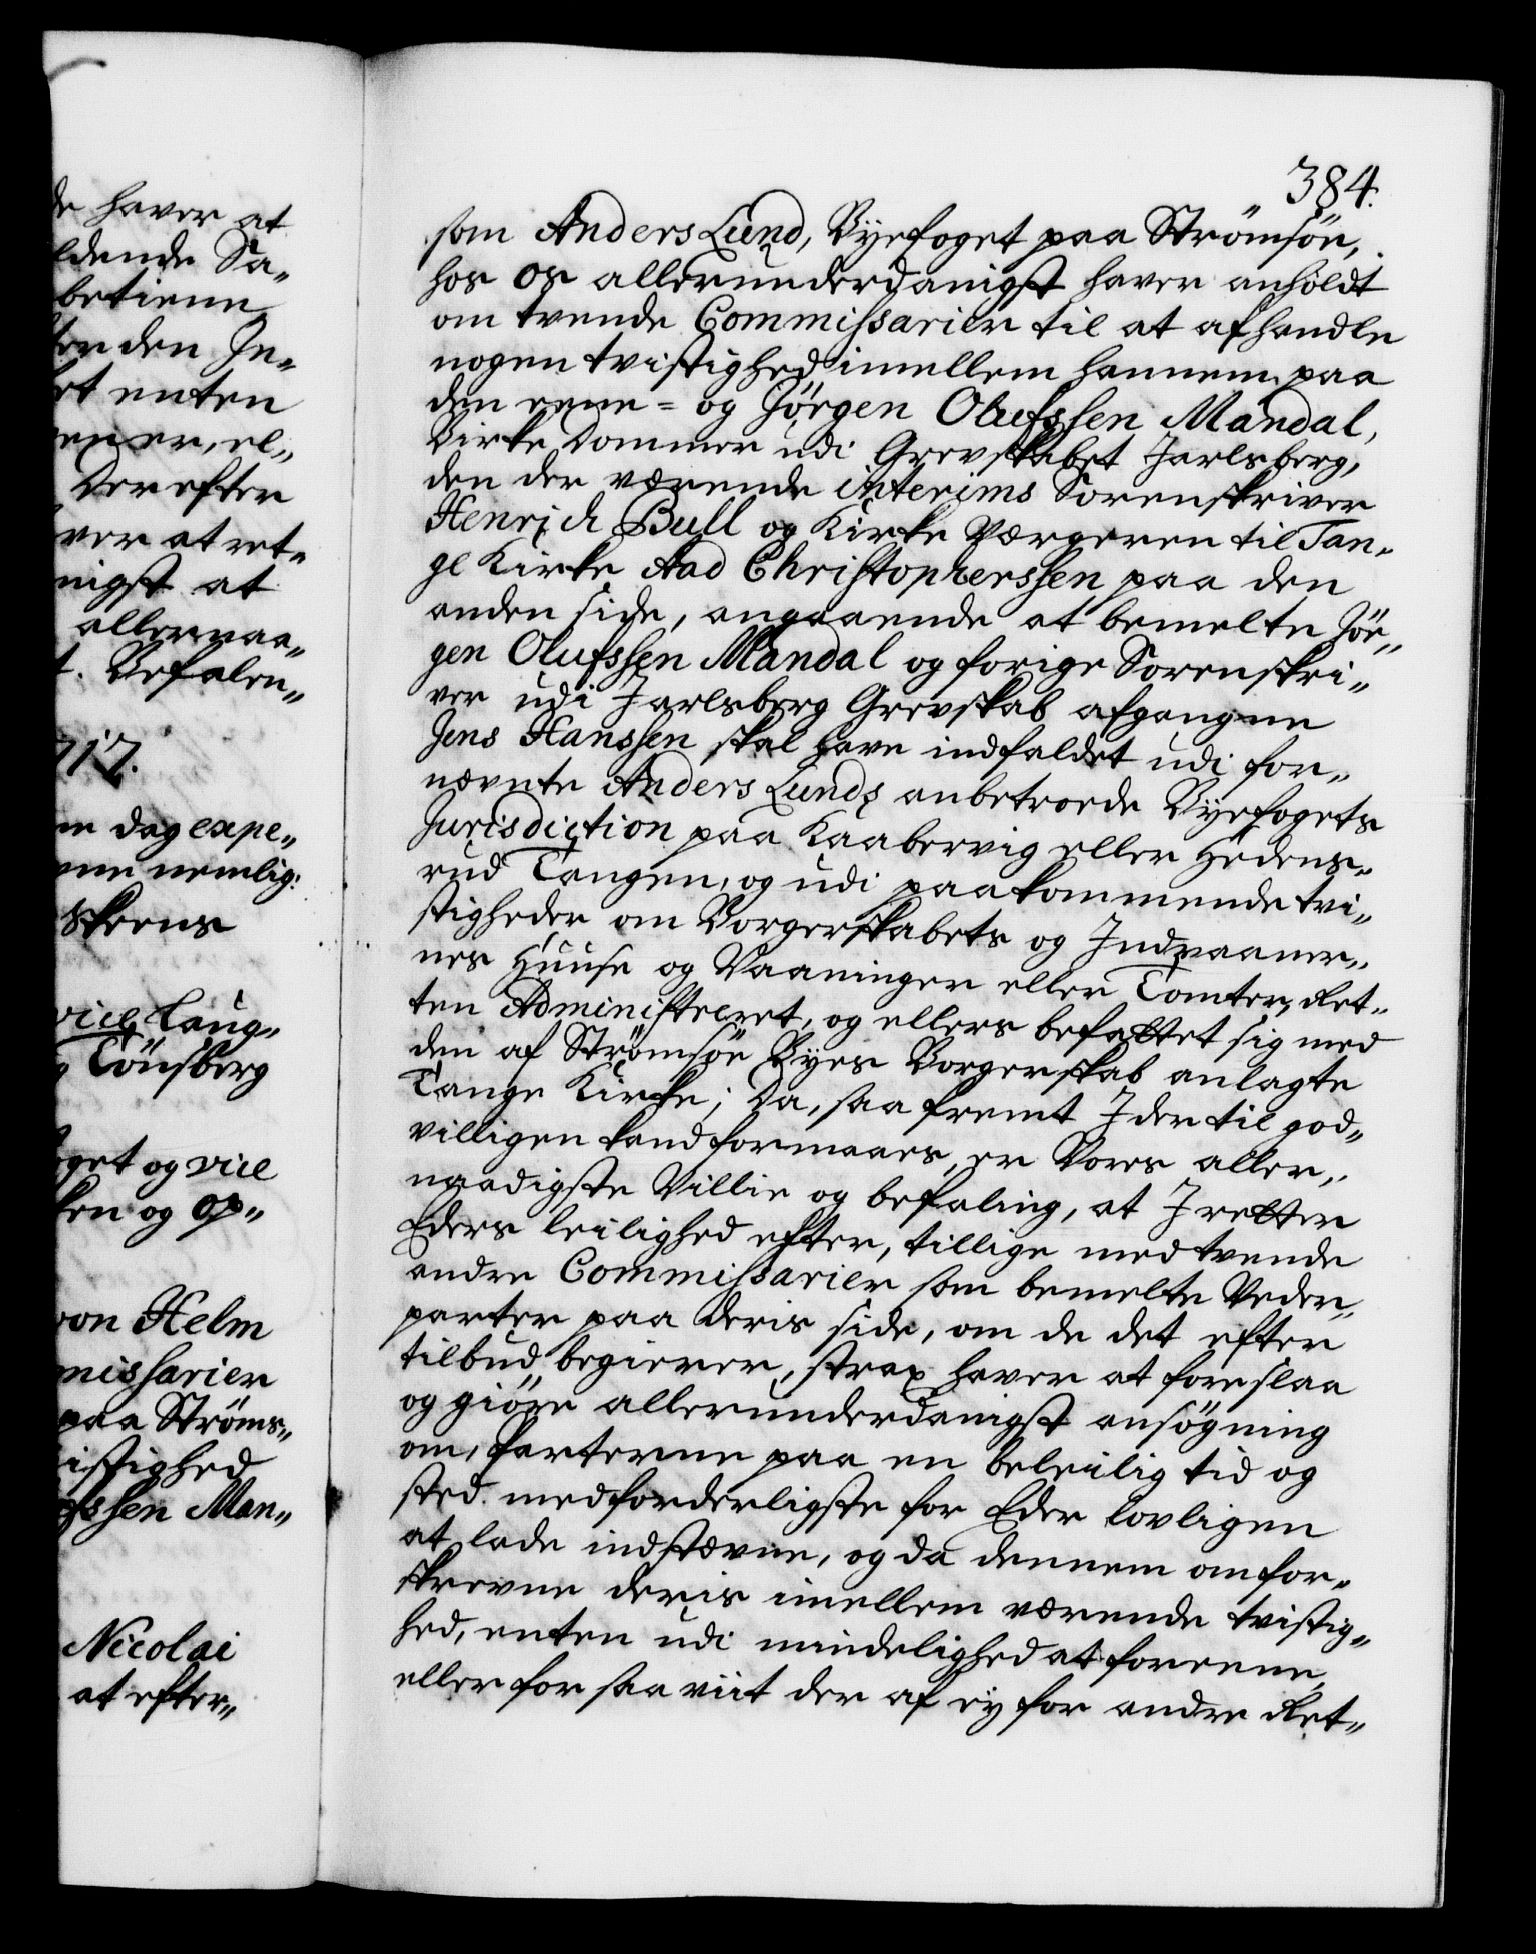 de haver at
ldende Sa-
betiene
for den In-
et enten
ener, el-
Derefter
ver at ret-
nigst at
allernaa-
t. Befalen-
717.
m dag expe-
nne nemlig:
Skeens
vice Laug-
g Tönsberg
oget og vice
ken og op-
von Helm
missarier
paa Ströms-
istighed
fssen Man-
Nicolai
at efter-
384.
som Anders Lund, Byefoget paa Strömsöe,
hos os allerunderdanigst haver anholdt
om tvende Commissarier til at afhandle
nogen tvistighed imellem hannem paa
den eene = og Jörgen Olufssen Mandal,
Birke Dommer udi Grevskabet Jarlsberg,
den der værende interims Sorenskriver
Henrich Bull og Kirke Værgeren til Tan-
ge Kirke Aad Christophersen paa den
anden side, angaaende at bemelte Jör-
gen Olufssen Mandal og forige Sorenskri-
ver udi Jarlsberg Grevskab afgangne
Jens Hanssen skal have indfaldet udi for-
nævnte Anders Lunds anbetroede Byefogets
Jurisdiction paa Kaabervig eller Hedens-
rud Tangen, og udi paakommende tvi-
stigheder om Borgerskabets og Indvaaner-
nes Huuse og Vaaninger eller Tomter, Ret-
ten Administreret, og ellers befattet sig med
den af Strömsöe Byes Borgerskab anlagte
Tange Kirke; Da, saa fremt I der til god-
villigen kand formaaes, er Vores aller-
naadigste Villie og befaling, at I retter
Eders leilighed efter, tillige med tvende
andre Commissarier som bemelte Veder-
parter paa deris side, om de det efter
tilbud begierer, strax haver at foreslaa
og giöre allerunderdanigst ansögning
om, Parterne paa en beleilig tid og
sted med forderligste for Eder lovligen
at lade indstævne, og da dennem om for-
skrevne deris imellem værende tvistig-
hed, enten udi mindelighed at foreene,
eller for saa viit der af ey for andre Ret-